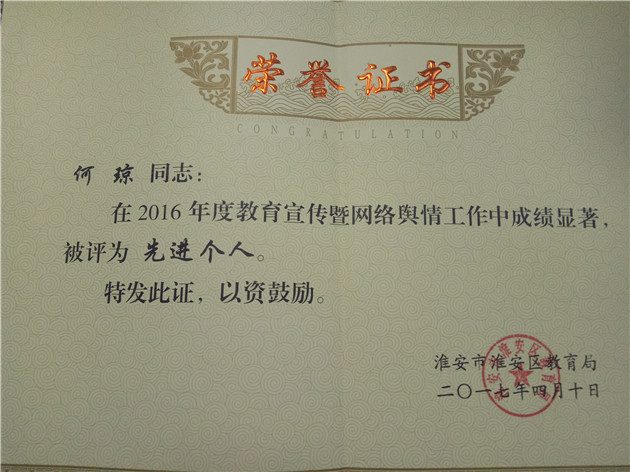 荣誉证书
CONGRATULATION
何琼 同志：
在 2016 年度教育宣传暨网络舆情工作中成绩显著，
被评为 先进个人。
特发此证，以资鼓励。
淮安市淮安区教育局
二〇一七年四月十日